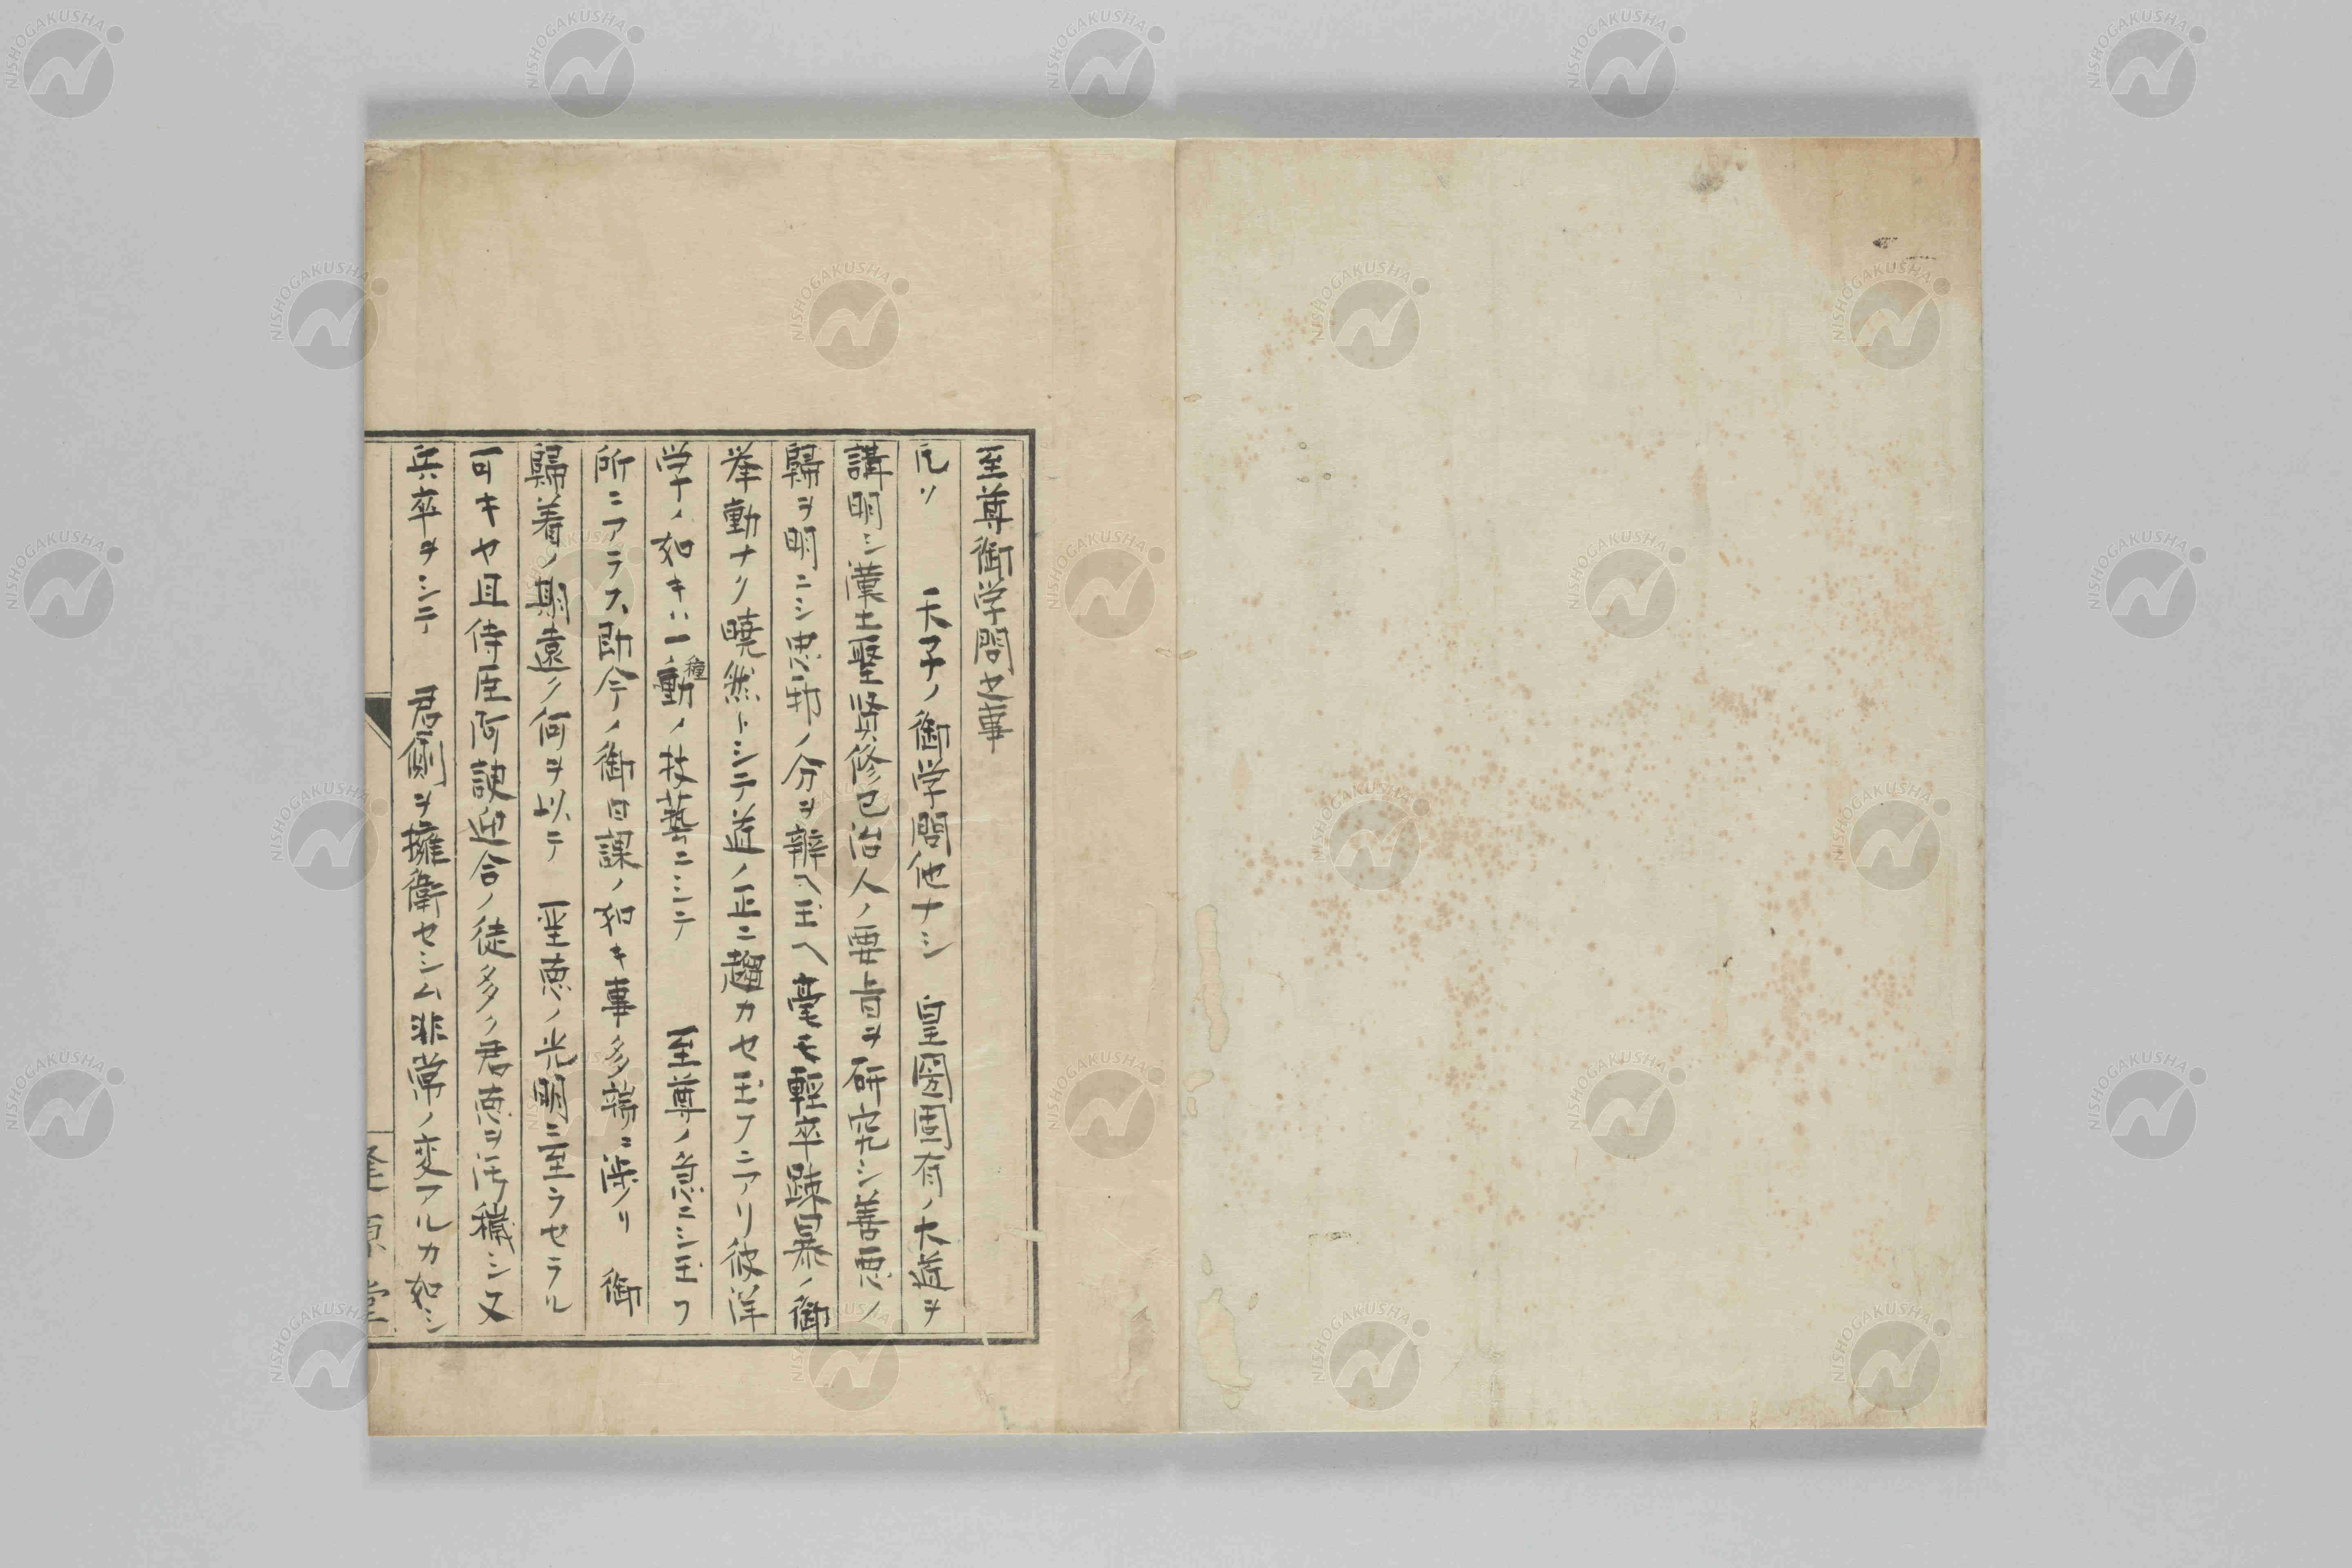 至尊御学問之事
凡ソ　天子ノ御学問他ナシ　皇圀固有ノ大道ヲ
講明シ漢土聖賢修己治人ノ要旨ヲ研究シ善悪ノ
歸ヲ明ニシ忠邪ノ分ヲ辨ヘ玉ヘ毫モ輕卒踈暴ノ御
挙動ナク曉然トシテ道ノ正ニ趨カセ玉フニアリ彼洋
学ノ如キハ一種動ノ技藝ニシテ　至尊ノ急ニシ玉フ
所ニアラス即今ノ御日課ノ如キ事多端ニ渉リ　御
歸着ノ期遠ク何ヲ以テ　聖悳ノ光明ニ至ラセラル
可キヤ且侍臣阿諛迎合ノ徒多ク君悳ヲ汚穢シ又
兵卒ヲシテ　君側ヲ擁衛セシム非常ノ変アルカ如シ
NISHOGAKUSHA